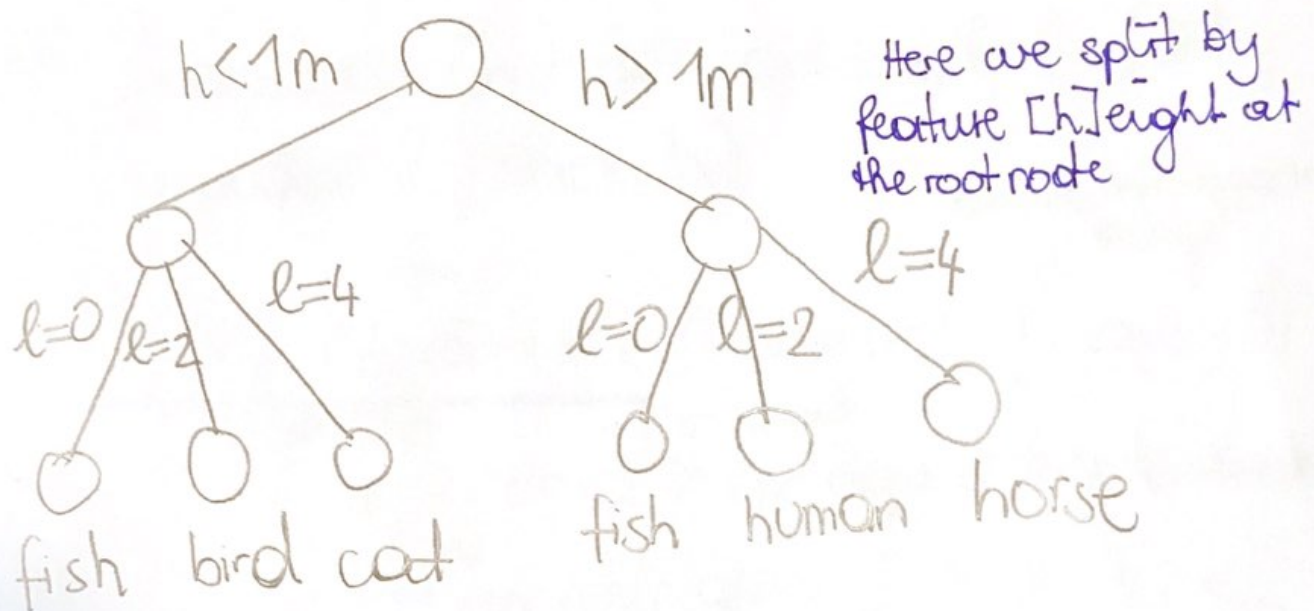 h<1m
h>1m
Here we split by
feature [h]eight at
the root node
l=0
l=2
l=4
l=0
l=2
l=4
fish bird cat
fish human horse